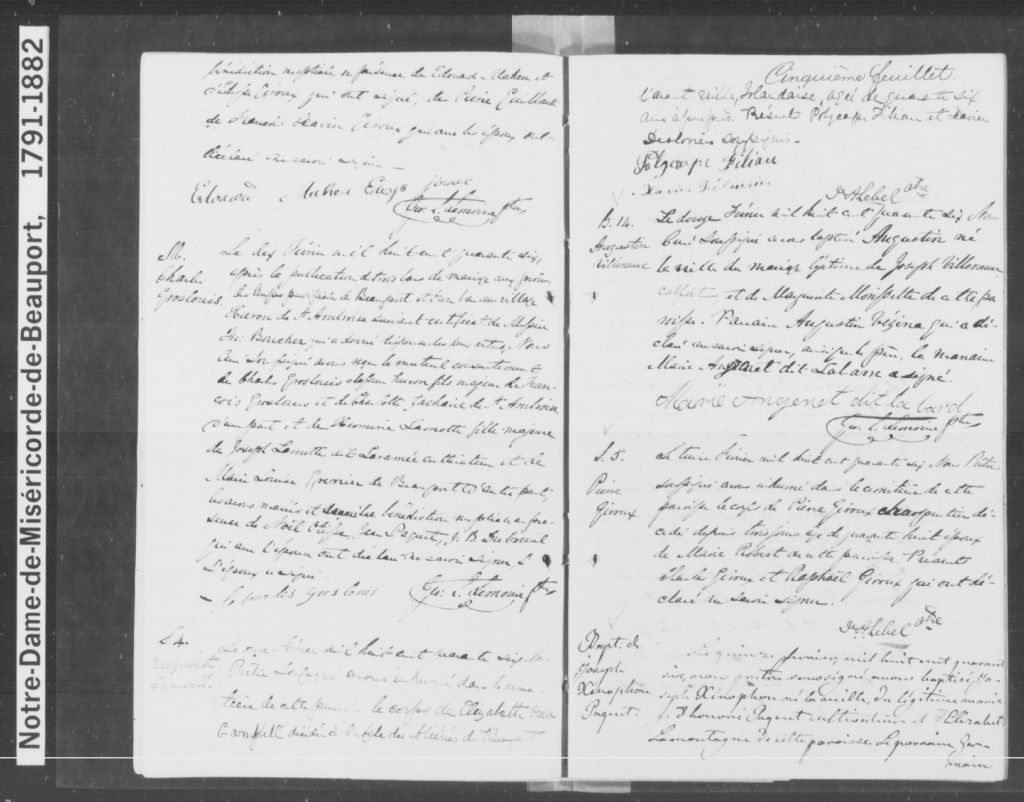 Notre-Dame-de-Miséricorde-de-Beauport, 1791-1882
bénédiction nuptiale en présence de Edouard Mahen et
Giroux qui ont signé, de Pierre
de Francois Xavier Giroux qui ont
déclaré ne savoir signer
Edouard
Geo. L. Lemoine Ptre
M.
Charles
Groslouis
Le dix Février mil huit cent quarante six,
après la publication de trois bans de mariage aux prônes
de Beauport et d'un ban au village
Huron de St Ambroise suivant certificat de Messire
Boucher, qui a donné dispense des deux autres, Nous
Curé Soussigné avons reçu le mutuel consentement
de Charles Groslouis Huron fils majeur de Fran-
cois Groslouis et de Charlotte Zacharie de St Ambroise
d'une part et de Hermine Lamotte fille majeure
de Joseph Lamotte dit Laramée cultivateur et de
Marie Louise Grenier de Beauport d'autre part,
les avons mariés et bénédiction nuptiale en pré-
sence de Noël Jean Paquet, J. B. Dubreuil
qui ont déclaré ne savoir signer
L'époux a signé
Charles Groslouis Geo. L. Lemoine Ptre
S. 4.
Elizabeth
Campbell
Le onze Février mil huit cent quarante six Nous
Prêtre Soussigné avons inhumé dans le cime-
tière de cette paroisse le corps de Elizabeth
Campbell décédée à l'Asyle des Aliénés de Beauport
Cinquième feuillet.
vivant ville, Irlandaise, agée de quarante six
ans à peu près. Présent Polycarpe Filian et Xavier
Deslories soussignés.
Polycarpe Filian
Xavier
D. A. Lebel Ptre
B. 14.
Augustin
Villeneuve
Le douze Février mil huit cent quarante six Nous
Curé Soussigné avons baptisé Augustin né
la veille du mariage légitime de Joseph Villeneuve
calfat et de Marguerite Moissette de cette pa
roisse. Parrain Augustin Vézina qui a dé-
claré ne savoir signer, ainsi que le père, la marraine
Marie dit a signé.
Marie Angenet dit la bard
Geo. L. Lemoine Ptre
S. 5.
Pierre
Giroux.
Le Février mil huit cent quarante six Nous Prêtre
soussigné avons inhumé dans le cimetière de cette
paroisse le corps de Pierre Giroux charpentier dé-
cédé depuis trois jours agé de quarante huit époux
de Marie Robert de cette paroisse. Présents
Charles Giroux et Raphaël Giroux qui ont dé-
claré ne savoir signer.
D. A. Lebel Ptre
Bapt. de
Joseph
Xénophon
Paquet.
Le quinze février, mil huit cent quarant
six, nous prêtre soussigné avons baptisé Jo-
seph Xénophon né la veille, du légitime maria
ge d'honoré Paquet cultivateur et d'Elizabeth
Lamontagne de cette paroisse. Le parrain Ger-
main